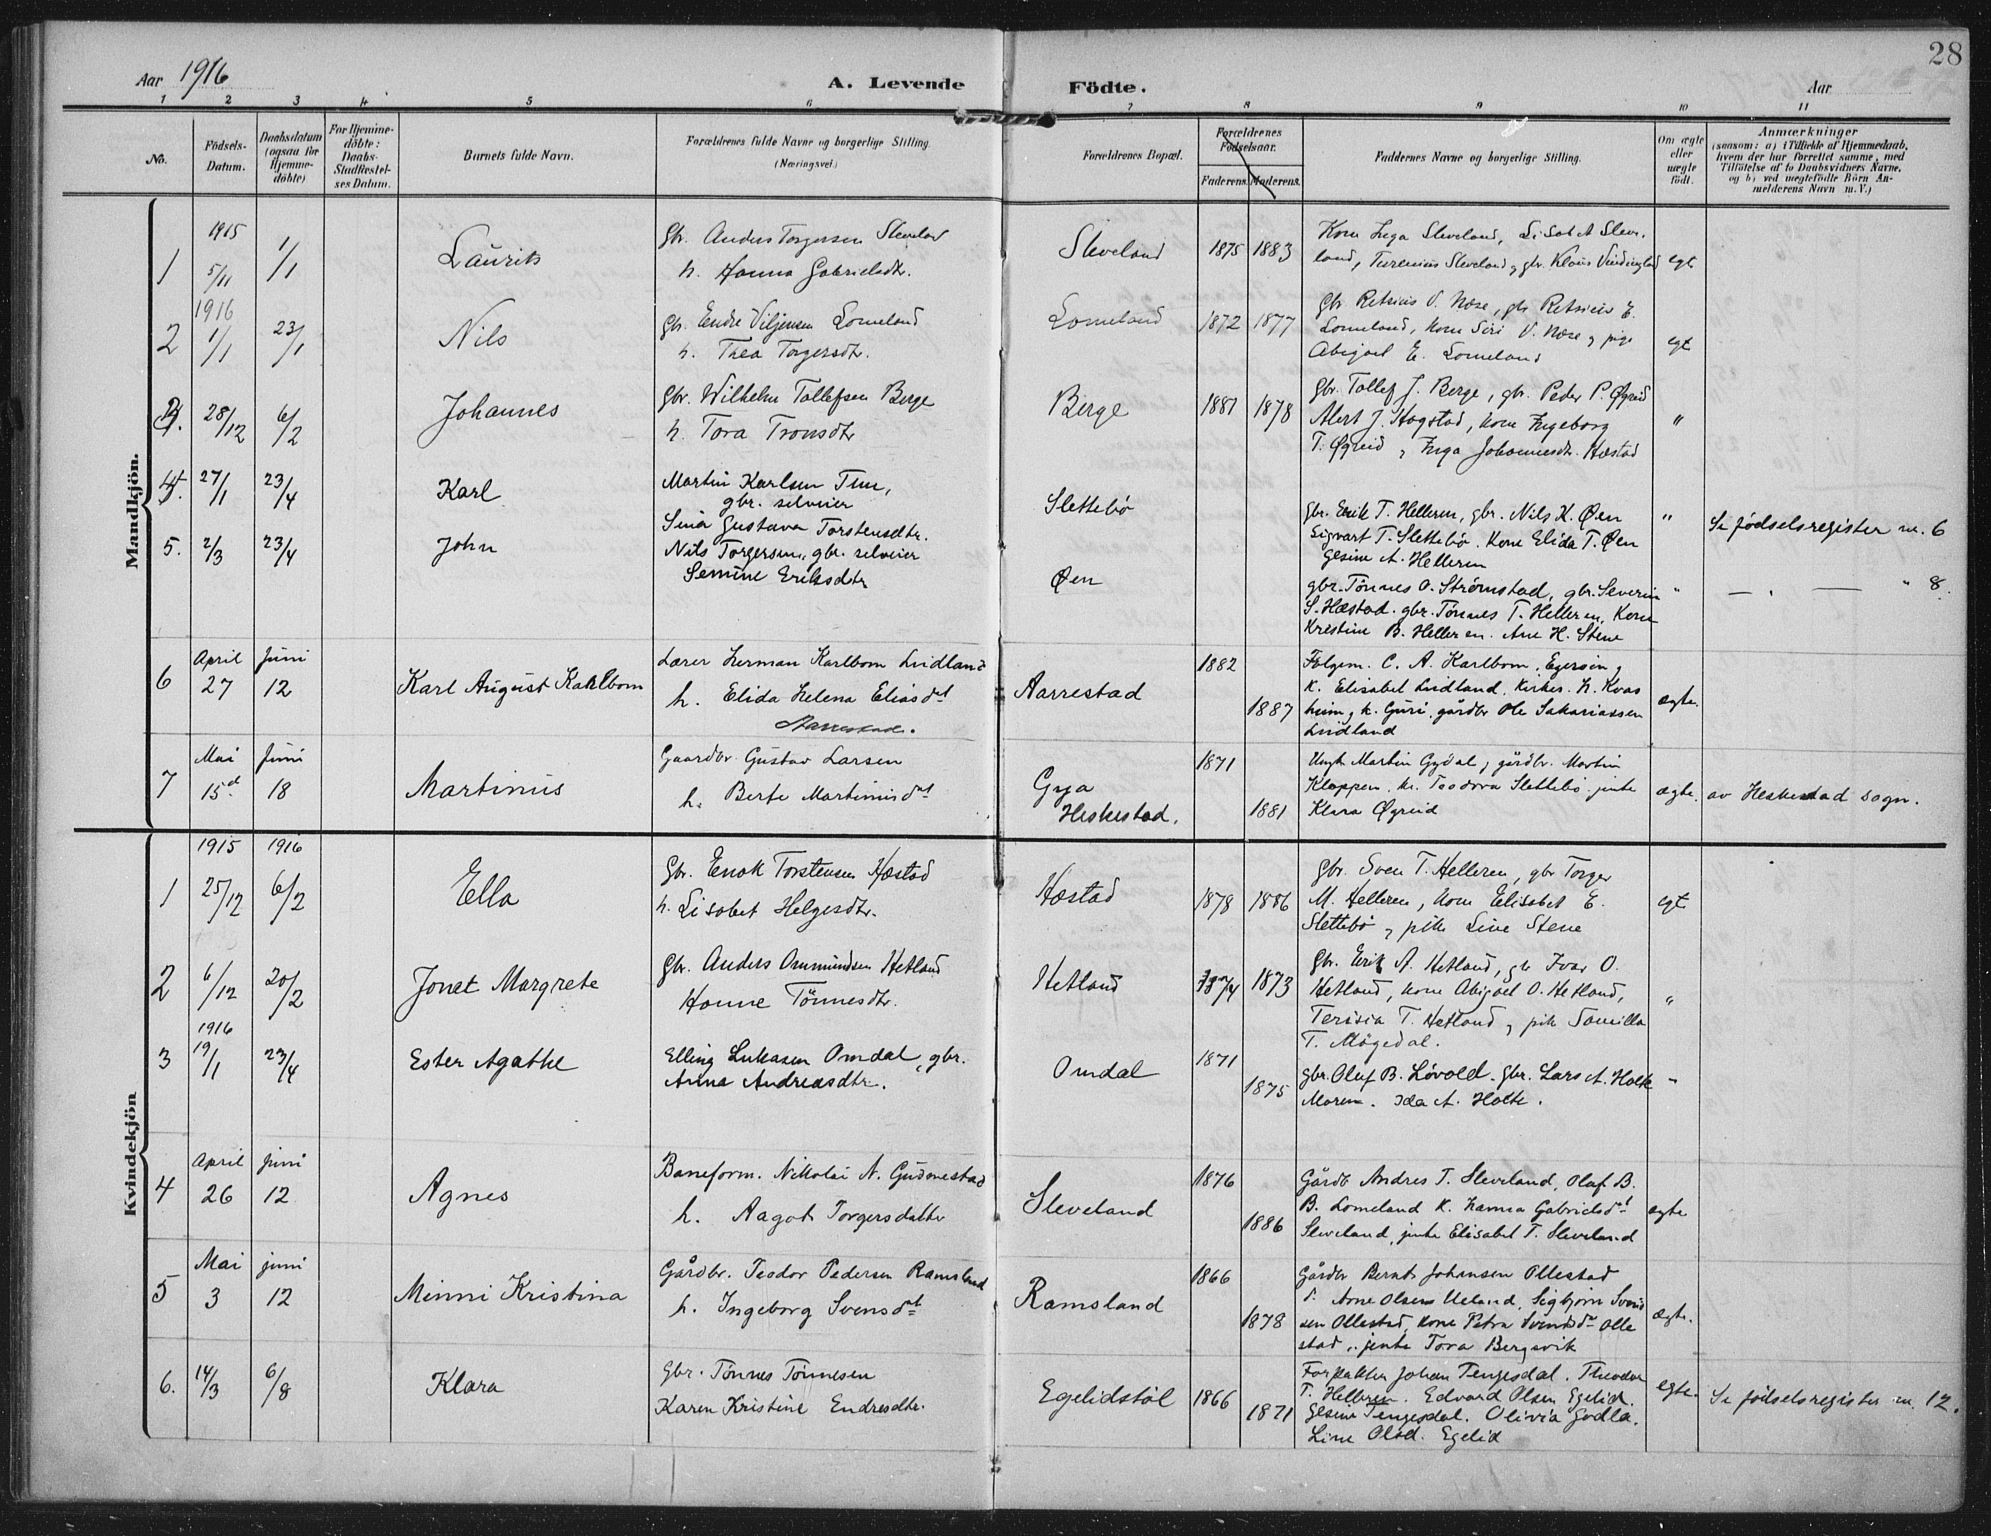 28
Aar 1916 A. Levende Födte. Aar
1 2 3 4 5 6 7 8 9 10 11
No. Födsels-Datum. Daabsdatum (ogsaa for Hjemme-döbte) For Hjemme-döbte: Daabs-Stadfæstel-ses Datum. Barnets fulde Navn. Forældrenes fulde Navne og borgerlige Stilling. (Næringsvei) Forældrenes Bopæl. Forældrenes Födselsaar. Faderens. Moderens. Faddernes Navne og borgerlige Stilling. Om ægte eller uægte födt. Anmærkninger (saasom: a) i Tilfælde af Hjemmedaab, hvem der har forrettet samme, med Tilföielse af to Daabsvidners Navne. og b) ved uægtefödte Börn An-melderens Navn m.V.)
Mandkjön.
1 1915 5/11 1/1 Laurits Gbr. Anders Torgersen Sleveland
h. Hanna Gabrielsdtr. Sleveland 1875 1883 Kone Inga Sleveland, Lisabet Sleve-
land, Turenius Sleveland, gbr. Klaus egt
2 1916 1/1 23/1 Nils Gbr. Endre Viljensen Lomeland
h. Thea Torgersdtr. Lomeland 1872 1877 Gbr. Retsius V. Næse, gbr. Retsius E.
Lomeland, kone Siri V. Næse, pige
Abigael E. Lomeland egt
4. 28/12 6/2 Johannes Gbr. Wilhelm Tollefsen Berge
h. Tora Tronsdtr Berge 1881 1878 Gbr. Tollef J. Berge, gbr. Peder P. Øgreid
Alert J. Hogstad, kone Ingeborg
T. Øgreid, Inga Johannesdt. Hæstad "
4. 27/1 23/4 Karl Martin Karlsen
gbr. selveier
Sina Gustava Torstensdtr. Slettebö gbr. Erik T. Helleren, gbr. Nils K. Øen
Sigvart T. Slettebö. Kone Elida T. Øen
Gesine A. Helleren " Se födselsregister nr. 6
5. 2/3 23/4 John Nils Torgersen, gbr. selveier
Semine Eriksdtr Øen gbr. Tönnes O. Strömstad, gbr. Severin
S. Hæstad. gbr. Tönnes T. Helleren, Kone
Kristine B. Helleren. Ane H. Stene " — " — " 8.
6 April 27 Juni 12 Karl August Karlbom Lærer Herman Karlbom Lindland
h. Elida Helena Eliasdt
Aarrestad. Aarrestad 1882 1887 C. A. Karlbom, Egersun,
K. Elisabet Lindland, Kirkes. H. Kvas
heim, k. Guri, gårdbr Ole Sakariassen
Lindland ægte.
7 Mai 15d Juni 18 Martinus Gaardbr Gustav Larsen
h. Berte Martinusdt Gya
Heskestad. 1871 1881 Ungk Martin Gydal, gårdbr. Martin
Kloppen, ki. Teodora Slettebö jente
Klara Øgreid ægte. av Heskestad sogn.
Kvindekjön
1 1915 25/12 1916 6/2 Ella Gbr. Enok Torstensen Hæstad
h. Lisabet Helgesdtr. Hæstad 1878 1886 Gbr. Sven T. Helleren, gbr Torger
M. Helleren, kone Elisabet E.
Slettebö, pike Line Stene egt
2 6/12 20/2 Jonet Margrete Gbr. Anders Ommundsen Hetland
Hanne Tönnesdtr. Hetland 1874 1873 Gbr. Erik A. Hetland, gbr Ivar O.
Hetland, kone Abigael O. Hetland,
Terisia T. Hetland, pike Tomilla
T. Mögedal. "
3 1916 19/1 23/4 Ester Agathe Elling Lukasen Omdal, gbr.
Anna Andreasdtr. Omdal 1871 1875 gbr. Oluf B. Lövold. gbr. Lars A. Holte
Maren. Ida A. Holte. "
4 April 26 Juni 12 Agnes Baneform. Nikolai N. Gudmestad
h. Aagot Torgersdatter Sleveland 1876 1886 Gårdb Andres T. Sleveland, Olaf B.
B. Lomeland K. Hanna Gabrielsdt
Sleveland, jente Elisabet T. Sleveland ægte
5 Mai 3 juni 12 Minni Kristina Gårdbr. Teodor Pedersen Ramsland
h. Ingeborg Svensdt Ramsland 1866 1878 Gårdbr Bernt Johansen Ollestad
Arne Olsen Ueland, Sigbjörn Svend
sen Ollestad, kone Petra Svendsdt Olle
stad, jente Tora Bergsvik ægte.
6. 14/3 6/8 Klara gbr. Tönnes Tönnesen
Karen Kristine Endresdtr. Egelidstöl 1866 1871 Forpakter Johan Tengesdal. Theodor
T. Helleren. Edvard Olsen Egelid.
Gesine Tengesdal. Olivia Godla.
Line Olsd. Egelid egte. Se födselsregister nr. 12.